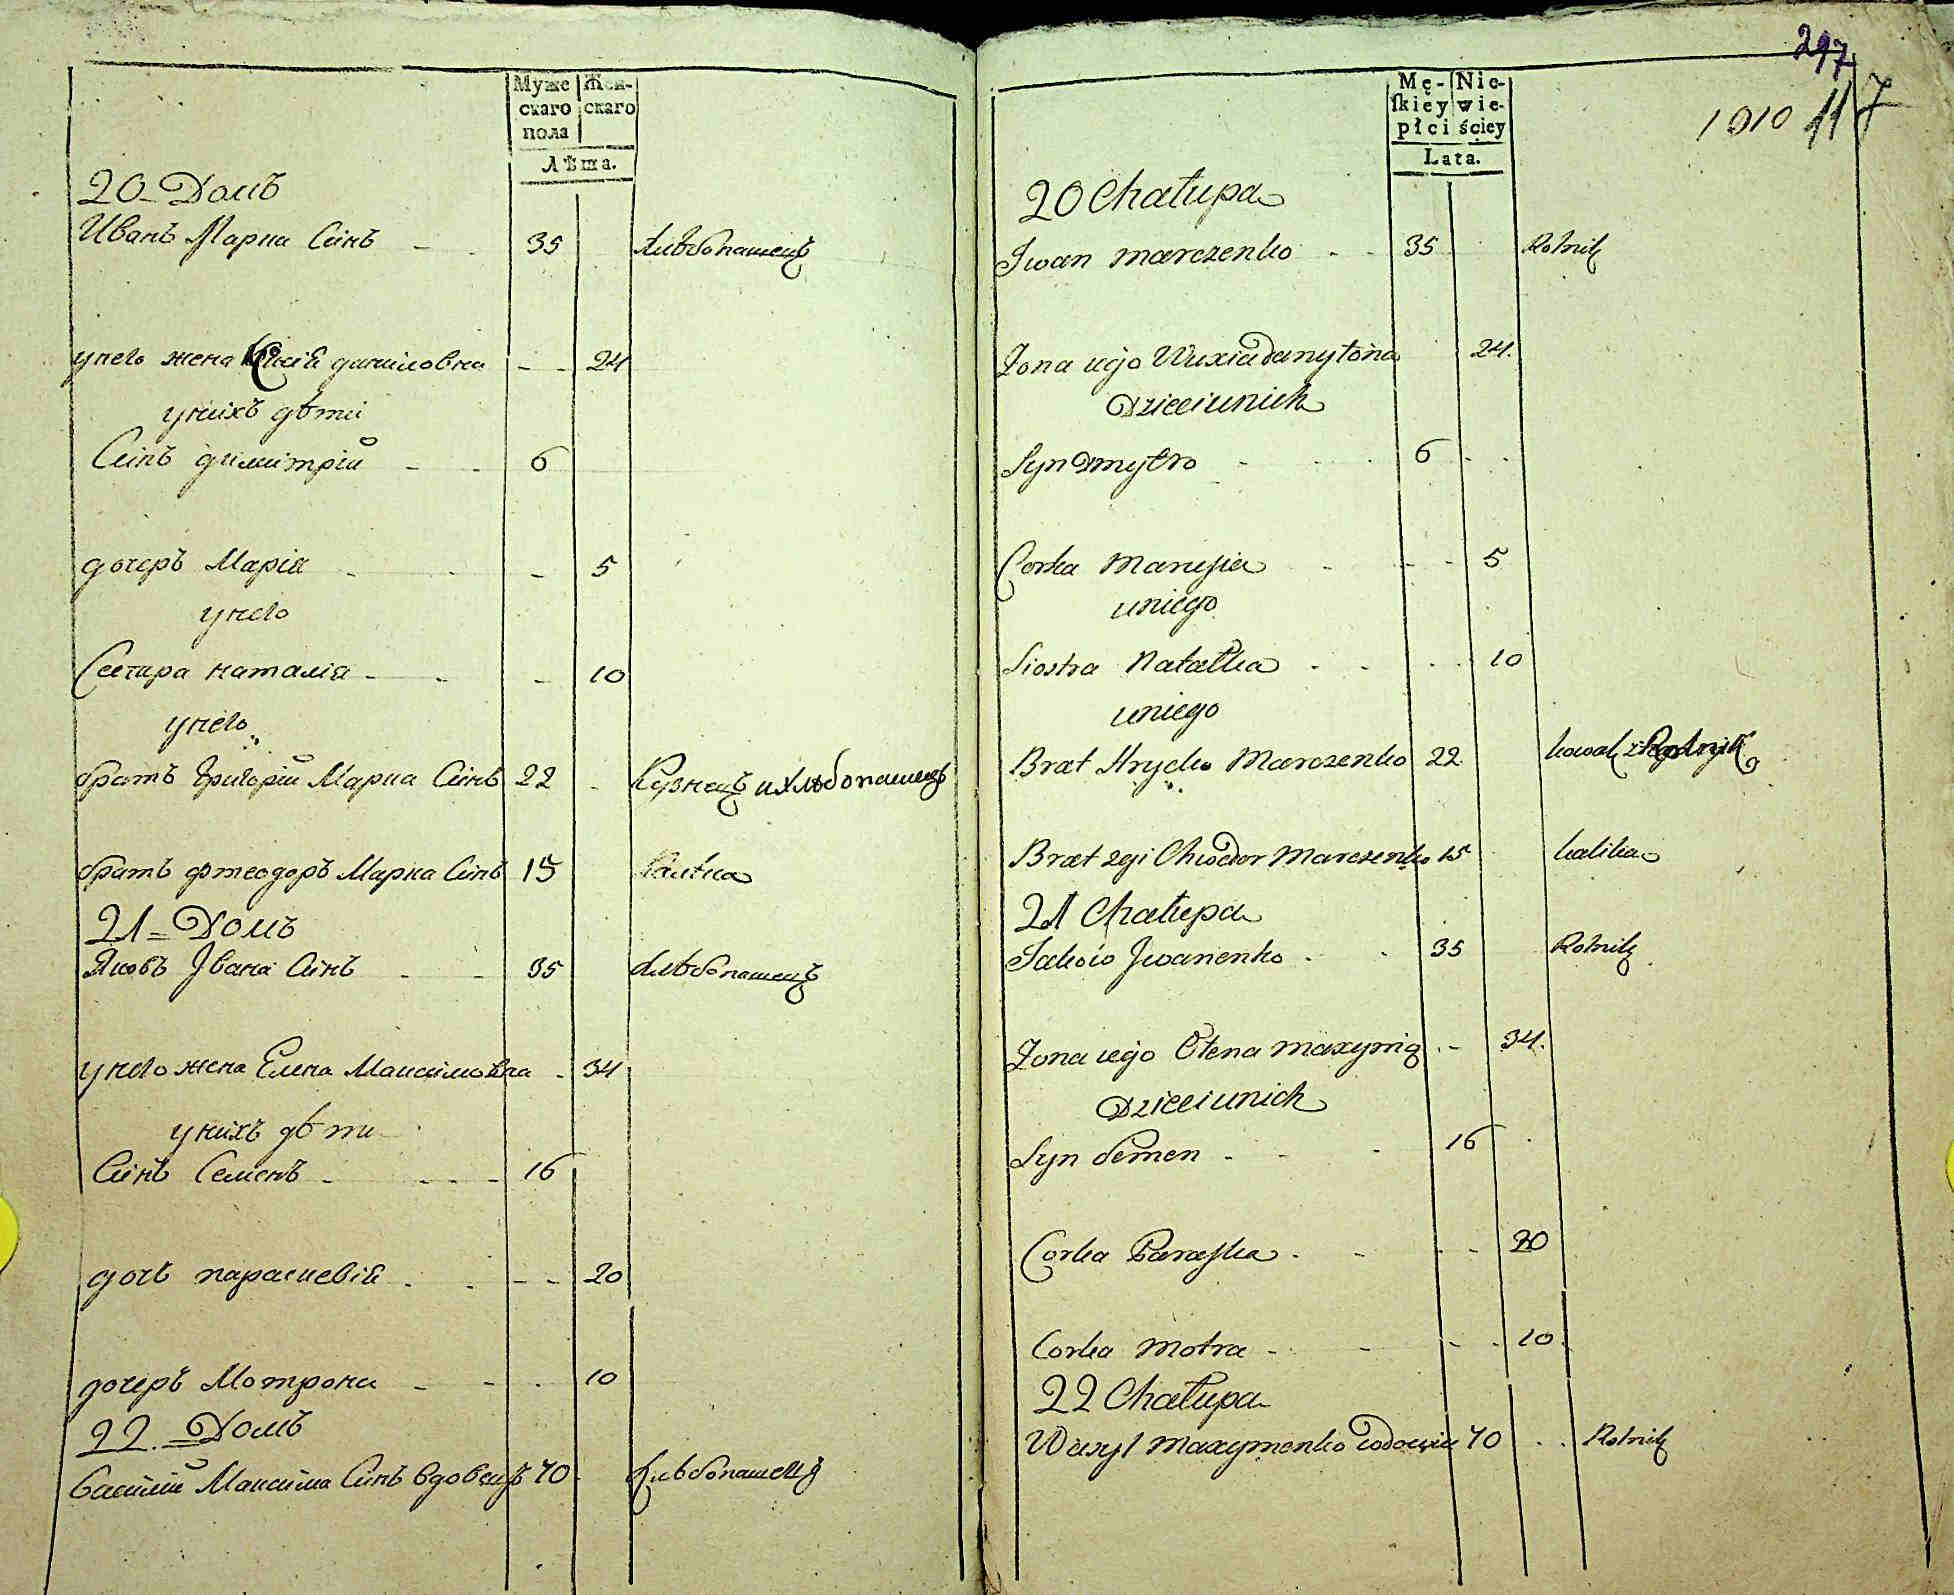 Муже
скаго
пола
Жен-
скаго
Лѣта.
20 - Домъ
Иванъ Марка Синъ - - 35 Хлѣбопашецъ
унего жена Ксѣнія даниловна - - 24
унихъ дѣти
Синъ димитрій - - 6
дочеръ Марія - - - 5
унего
Сестра наталія - - - 10
унего
братъ Григорій Марка Синъ 22 - Кузнецъ и хлѣбопашецъ
братъ фтеодоръ Марка Синъ 15 Калѣка
21 = Домъ
Яковъ Івана Синъ - - 35 Хлѣбопашецъ
унего жена Елена Максимовна - 34
унихъ дѣти
Синъ Семенъ - - - - 16
дочъ параскевія - - - - 20
дочеръ Мотрона - - - 10
22 = Домъ
Василій Максима Синъ вдовецъ 70 Хлѣбопашецъ
297
1010 117
Mę-
skiey
płci
Nie-
wie-
ściey
Lata.
20 Chałupa
Iwan Marczenko - - 35 Rolnik
Zona iego Danyłona 24.
Dzieci unich
Syn Dmytro - - 6 - -
Corka Marusia - - - 5
uniego
Siostra Natalka - - - - 10
uniego
Brat Hryćko Marczenko 22 kowal i Rolnik
Brat 2gi Chwedor Marczenko 15 kalika
21 Chałupa
Jakow Jwanenko - - 35 Rolnik
Zona iego Ołena Maxymig - - 34.
Dzieci unich
Syn Semen - - - 16 -
Corka Paraska - - - - 20
Corka Motra - - - - 10
22 Chałupa
Wasyl Maxymenko wdowiec 70 - - Rolnik